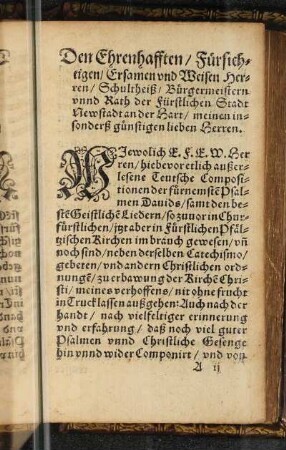 Den Ehrenhafften / Fürsich-
tigen / Ersamen vnd Weisen Her-
ren / Schultheiß / Bürgermeistern
vnnd Rath der Fürstlichen Stadt
Newstadt an der Hart / meinen in-
sonderß günstigen lieben Herren.
WJewolich E. F. E. W. Her
ren / hiebevor etliche außer-
lesene Teutsche Composi-
tionen der fürnemstē Psal-
men Dauids / samt den be-
stē Geistlichē Liedern / so zuuor in Chur-
fürstlichen / jtzt aber in Fürstlichen Pfäl-
tzischen Kirchen im brauch gewesen / vñ
noch sind / neben derselben Catechismo /
gebeten / vnd andern Christlichen ord-
nungē / zu erbawung der Kirchē Chri-
sti / meines verhoffens / nit ohne frucht
in Truck lassen auß gehen: Auch nach der
handt / nach vielfeltiger erinnerung
vnd erfahrung / daß noch viel guter
Psalmen vnnd Christliche Gesenge
hin vnnd wider Componirt / vnd von
A ij